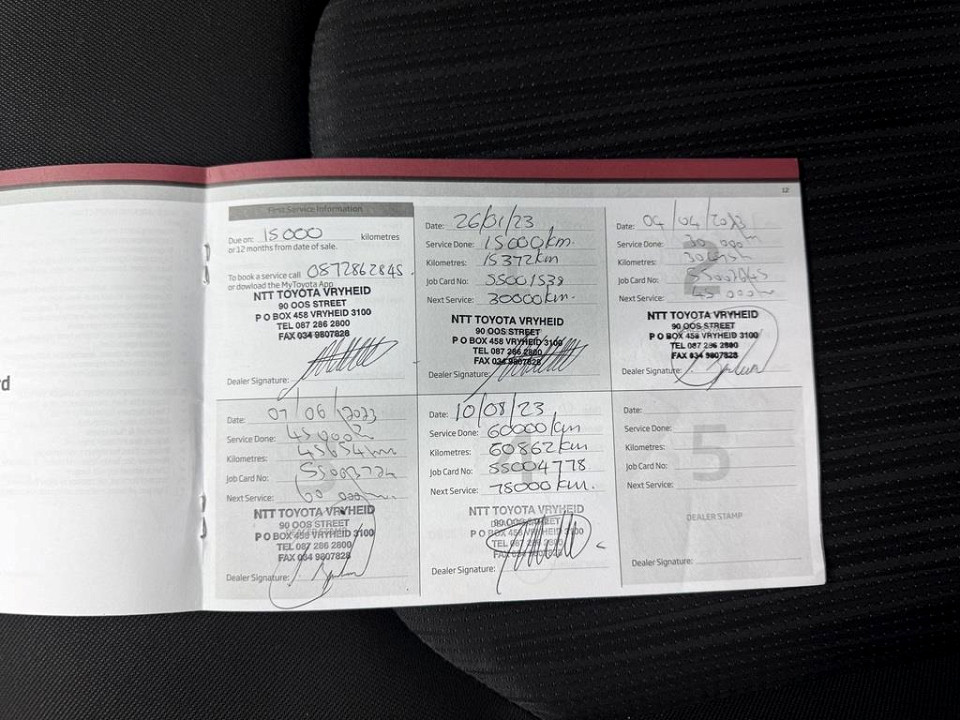 12
First Service Information
Due on: 15 000 kilometres
or 12 months from date of sale.
To book a service call 0872862845
or dowload the MyToyota App
NTT TOYOTA VRYHEID
90 OOS STREET
P O BOX 458 VRYHEID 3100
TEL 087 286 2800
FAX 034 9807828
Dealer Signature:
Date: 26/01/23
Service Done: 15000km.
Kilometres: 15372km
Job Card No: SS001539
Next Service: 30000km.
NTT TOYOTA VRYHEID
90 OOS STREET
P O BOX 458 VRYHEID 3100
TEL 087 286 2800
FAX 034 9807828
Dealer Signature:
2
Date: 04/04/2023
Service Done: 30 000
Kilometres:
Job Card No:
Next Service: 45 000
NTT TOYOTA VRYHEID
90 OOS STREET
P O BOX 458 VRYHEID 3100
TEL 087 286 2800
FAX 034 9807828
Dealer Signature:
d
Date: 07/06/2023
Service Done: 45 000
Kilometres: 45654km
Job Card No:
Next Service: 60 000
NTT TOYOTA VRYHEID
90 OOS STREET
P O BOX 458 VRYHEID 3100
TEL 087 286 2800
FAX 034 9807828
Dealer Signature:
Date: 10/08/23
Service Done: 60000km
Kilometres: 60862km
Job Card No: SS004778
Next Service: 75000km.
NTT TOYOTA VRYHEID
90 OOS STREET
P O BOX 458 VRYHEID 3100
TEL 087 286 2800
FAX 034 9807828
Dealer Signature:
Date:
Service Done:
Kilometres:
Job Card No:
Next Service:
5
DEALER STAMP
Dealer Signature: